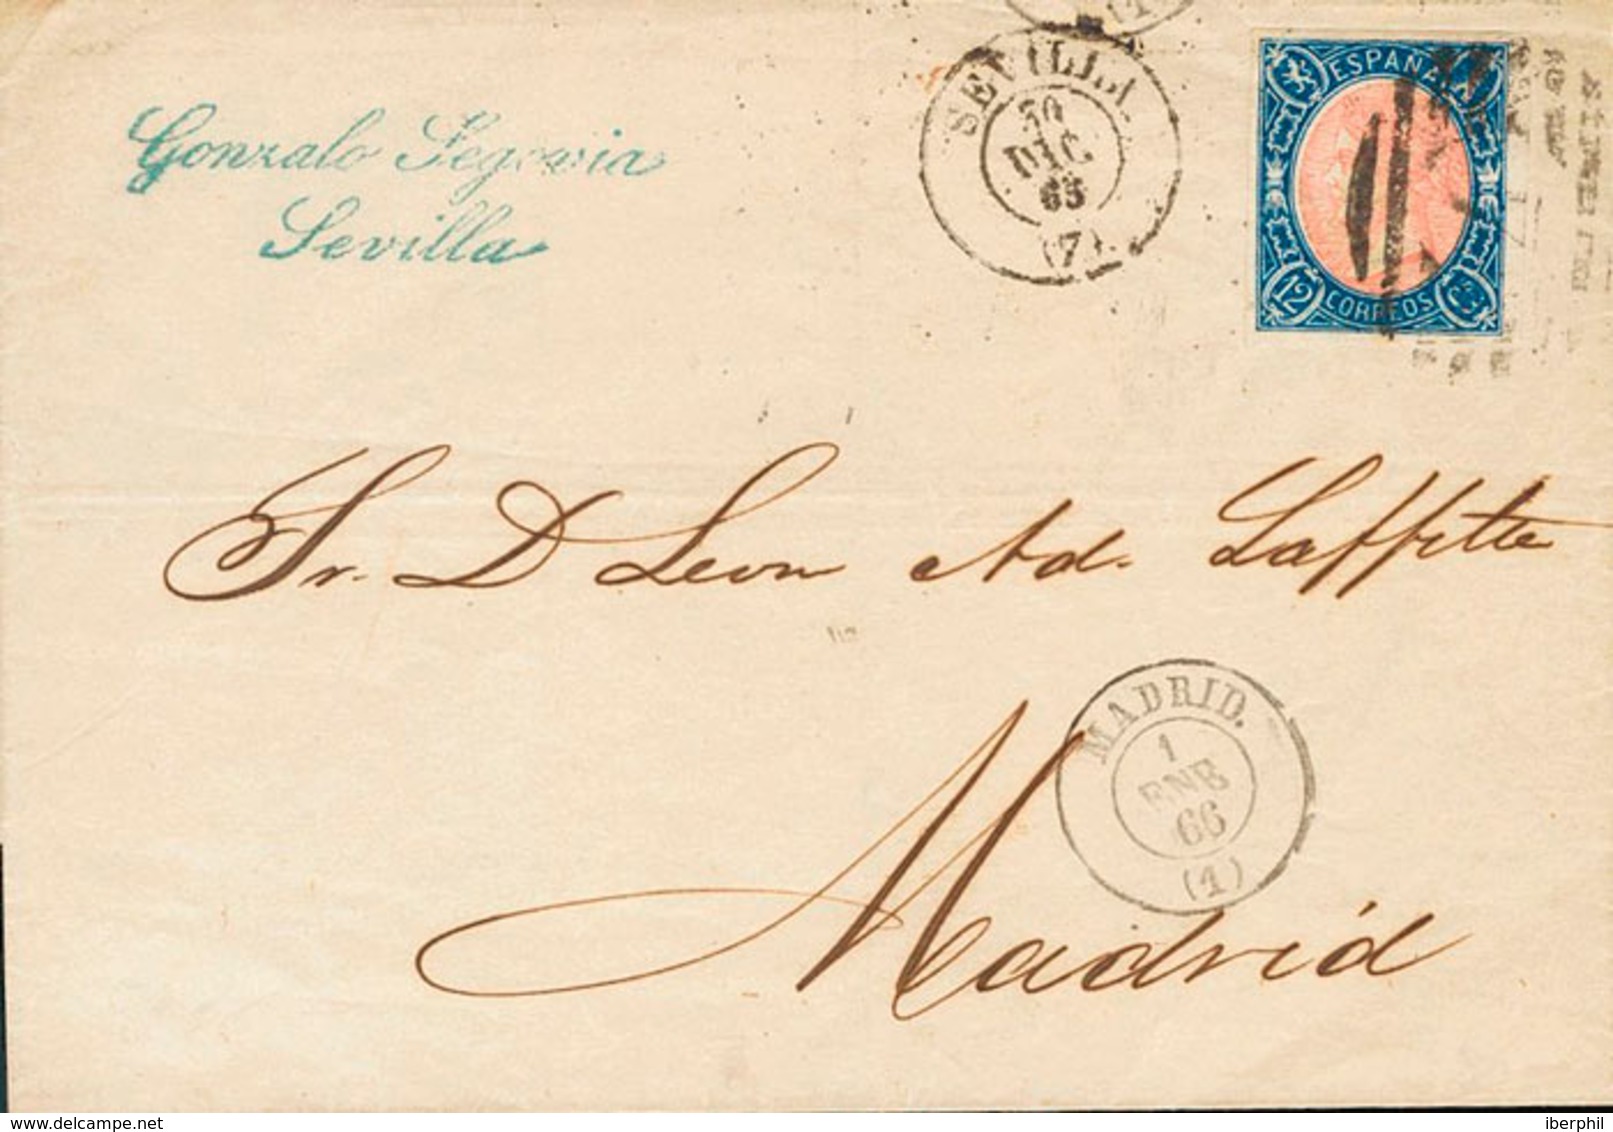 Gonzalo Segovia
Sevilla
SEVILLA
30
DIC
65
(7)
ESPAÑA
12
CORREOS
Sr. D Leon Ad. Laffitte
MADRID.
1
ENE
66
(1)
Madrid
delcampe.net
iberphil